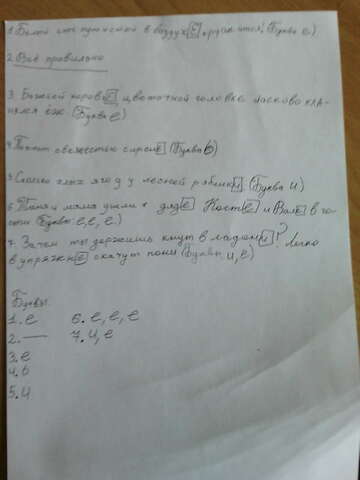 1. Белой ... пушистой в воздухе кружится. (Буква е)
2. Всё правильно
3. Божьей коровке цветочной головке ласково кла-
нялся ёж. (Буква е)
4. Пахнет свежестью сирень (Буква ь)
5. Сколько ... ягод у лесной рябини. (Буква и)
6. Таня и мама ушли к дяде Косте и Вале в го-
сти (Буквы: е, е, е.)
7. Зачем ты держишь кнут в ладони? Легко
в упряжке скачут пони (Буквы и, е)
Буквы:
1. е 6. е, е, е
2. — 7. и, е
3. е
4. ь
5. и